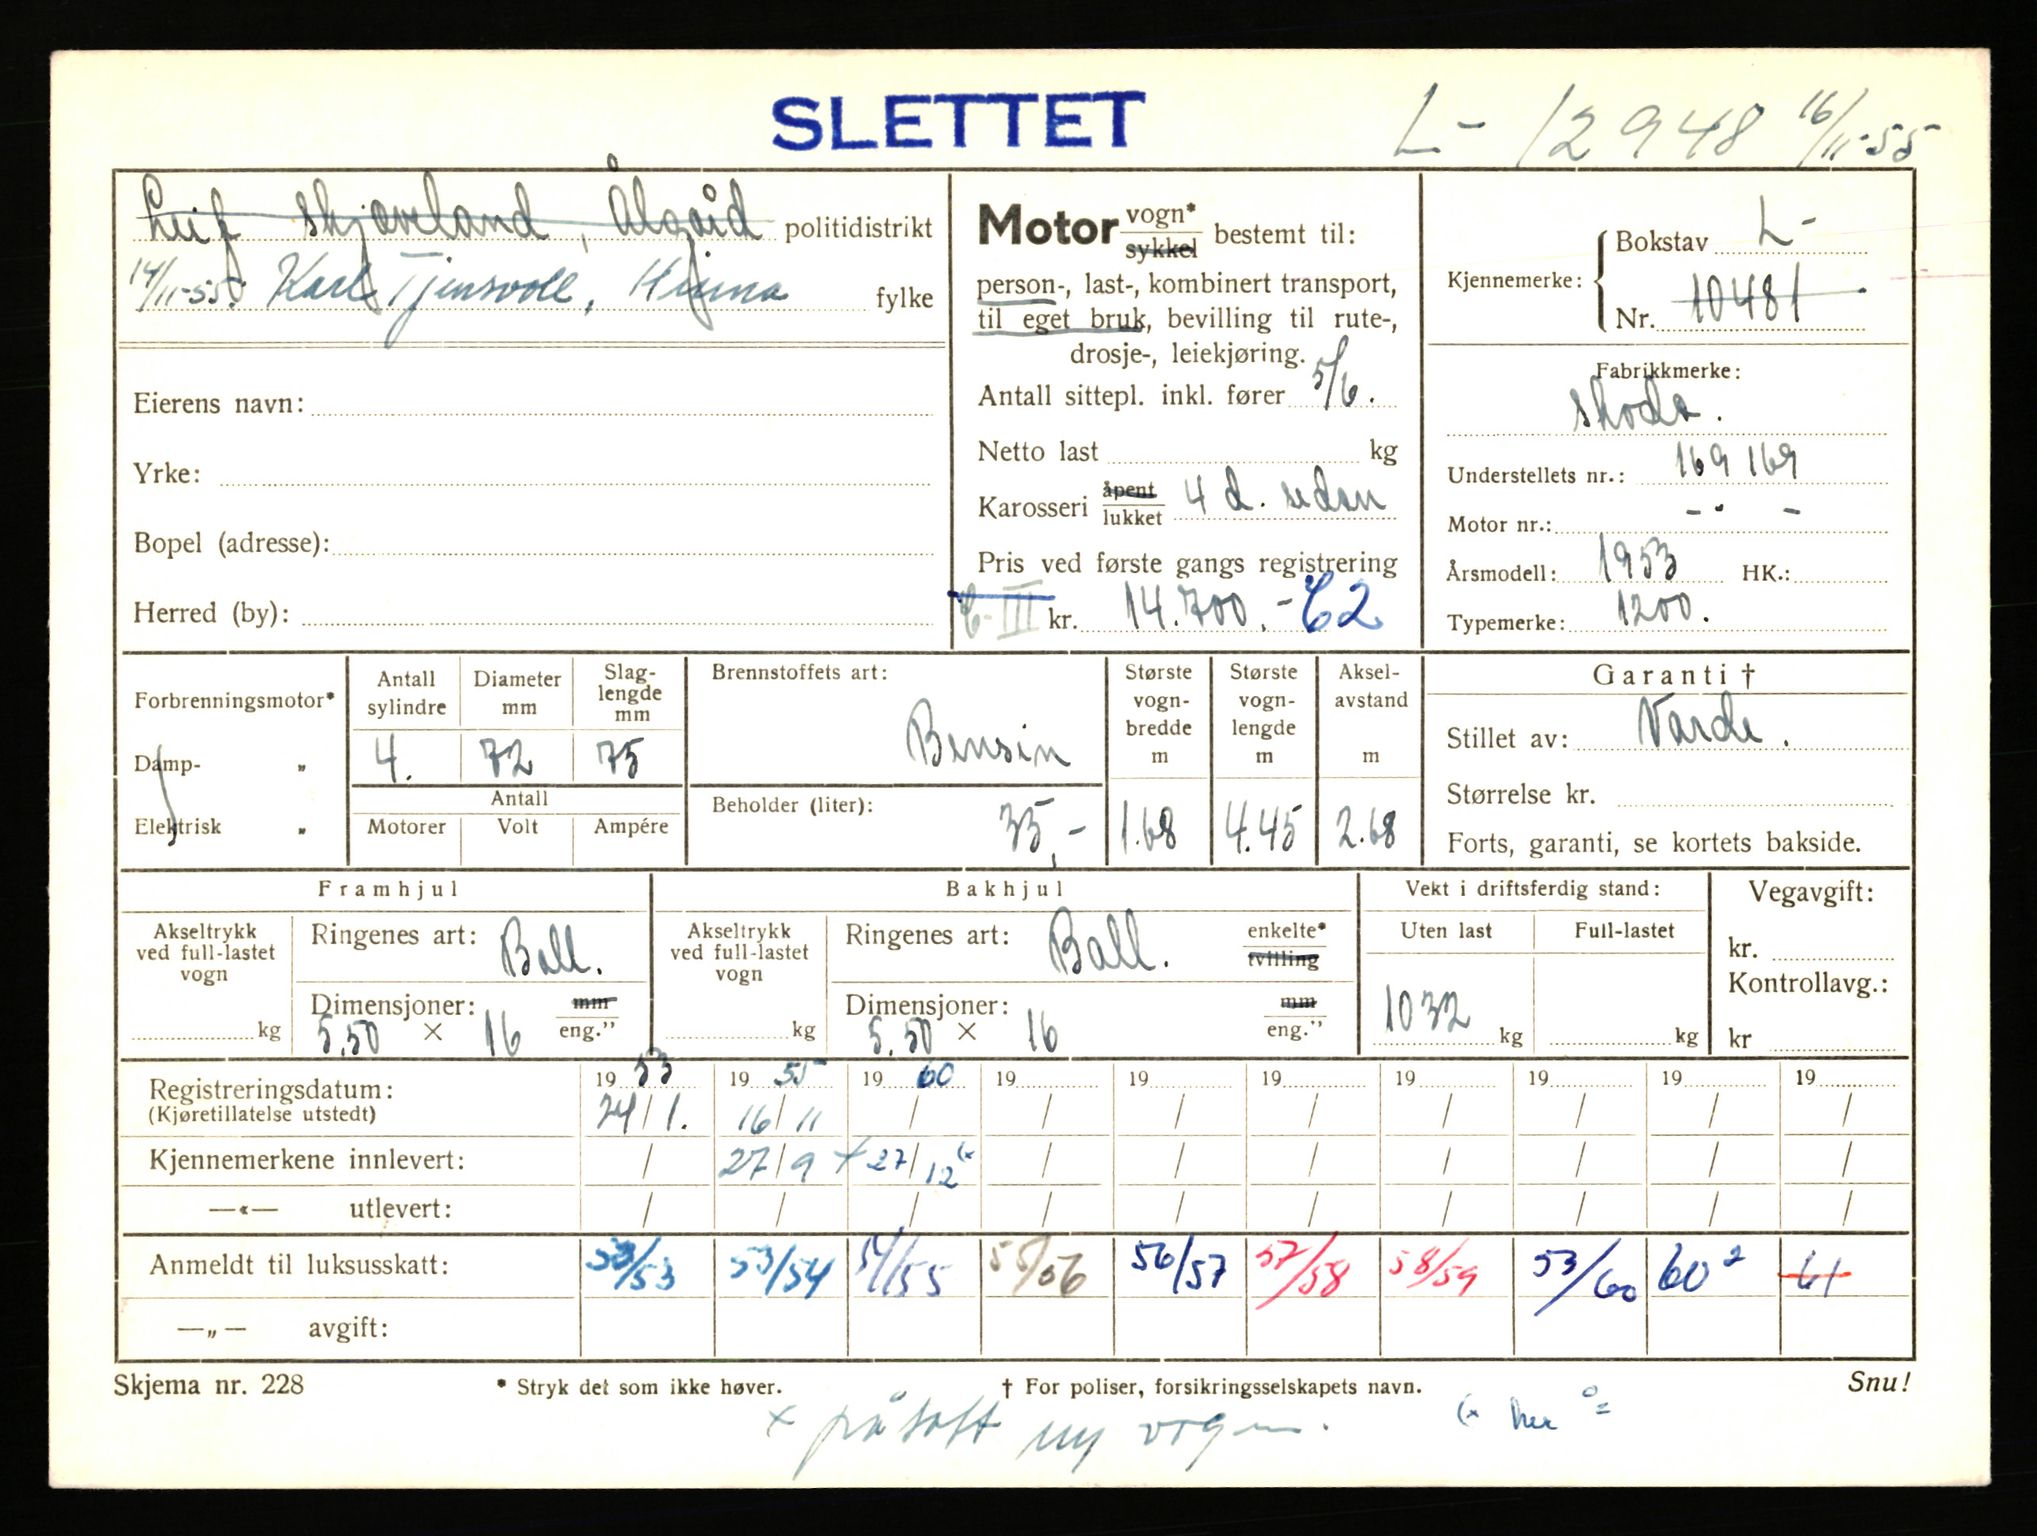 SLETTET
L- 12948 16/11-55
Leif Skjæveland, Ålgård politidistrikt
14/11-55 Karl Tjensvoll, Hinna fylke
Eierens navn:
Yrke:
Bopel (adresse):
Herred (by):
Motor vogn* sykkel bestemt til:
person-, last-, kombinert transport,
til eget bruk, bevilling til rute-,
drosje-, leiekjøring.
Antall sittepl. inkl. fører 5/6.
Netto last kg
Karosseri åpent lukket 4 d. sedan
Pris ved første gangs registrering
C-III kr. 14.700,- C2
Kjennemerke: Bokstav L-
Nr. 10481
Fabrikkmerke:
Skoda.
Understellets nr.: 169169
Motor nr.: - " -
Årsmodell: 1953 HK.:
Typemerke: 1200.
Forbrenningsmotor*
Damp- „
Elektrisk „
Antall sylindre 4.
Diameter mm 72
Slag-lengde mm 75
Antall
Motorer Volt Ampére
Brennstoffets art:
Bensin
Beholder (liter): 35,-
Største vogn-bredde m 1.68
Største vogn-lengde m 4.45
Aksel-avstand m 2.68
Garanti †
Stillet av: Varde.
Størrelse kr.
Forts, garanti, se kortets bakside.
Framhjul
Akseltrykk ved full-lastet vogn kg
Ringenes art: Ball.
Dimensjoner: mm eng.”
5.50 × 16
Bakhjul
Akseltrykk ved full-lastet vogn kg
Ringenes art: Ball. enkelte* tvilling
Dimensjoner: mm eng.”
5.50 × 16
Vekt i driftsferdig stand:
Uten last 1032 kg
Full-lastet kg
Vegavgift:
kr.
Kontrollavg.:
kr
Registreringsdatum: 1953 1955 1960 19 19 19 19 19 19 19
(Kjøretillatelse utstedt) 24/1. 16/11 / / / / / / / /
Kjennemerkene innlevert: / 27/9 + 27/12 (x / / / / / / /
—«— utlevert: / / / / / / / / / /
Anmeldt til luksusskatt: 53/53 53/54 54/55 55/56 56/57 57/58 58/59 53/60 60² 61
—„— avgift:
Skjema nr. 228 * Stryk det som ikke høver. † For poliser, forsikringsselskapets navn. Snu!
x påsatt ny vogn. (x her